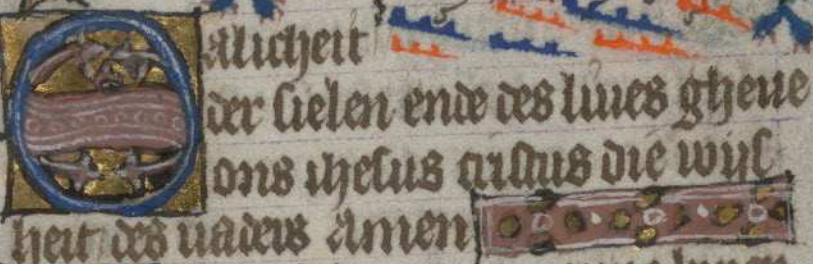 Salicheit
der sielen ende des liues gheue
ons ihesus cristus die wijs
heit des uaders amen